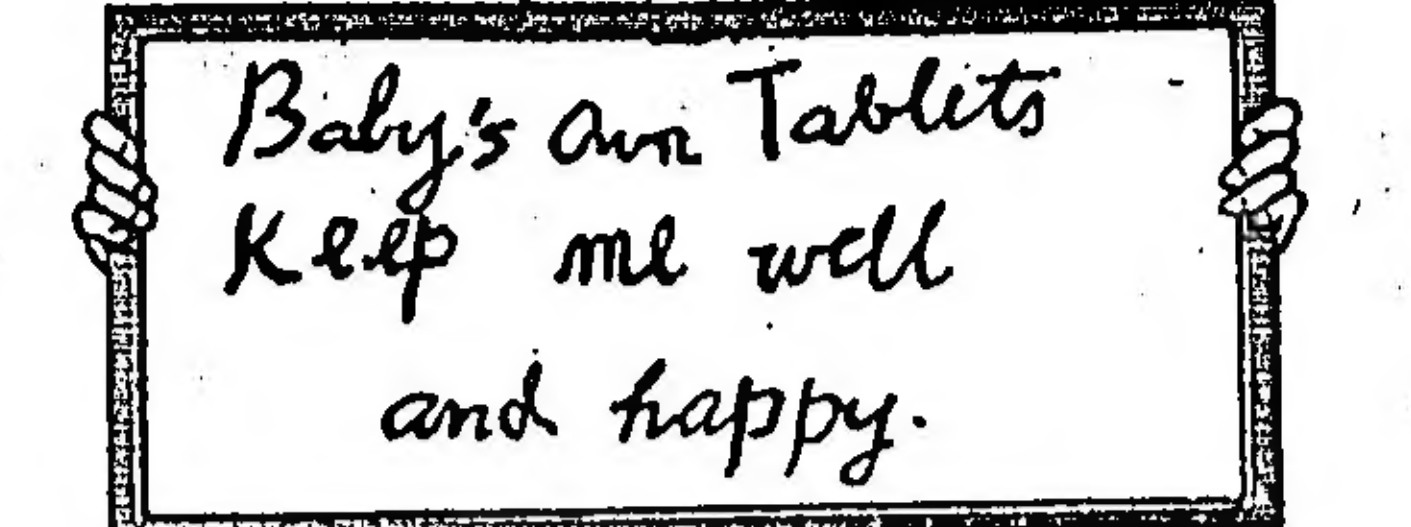 Baby's Own Tablets
Keep me well
and happy.